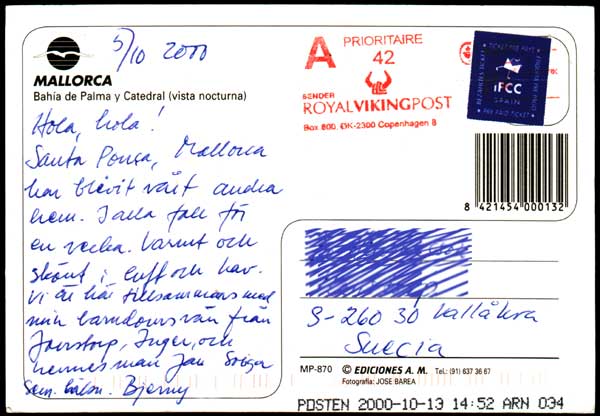 5/10 2000
MALLORCA
Bahía de Palma y Catedral (vista nocturna)
Hola, hola!
Santa Ponsa, Mallorca
har blivit vårt andra
hem. I alla fall för
en vecka. Varmt och
skönt i luft och hav.
Vi är här tillsammans med
min barndomsvän från
Inger, och
hennes man Jan
Bjerny
A PRIORITAIRE
42
SENDER
ROYALVIKINGPOST
Box 800, DK-2300 Copenhagen S
TICKET PRE PAYE
iFCC
SPAIN
PRE PAID TICKET
8 421454 000132
S-260 30 Vallåkra
Suecia
MP-870 © EDICIONES A. M. Tel.: (91) 637 36 67
Fotografía: JOSE BAREA
POSTEN 2000-10-13 14:52 ARN 034